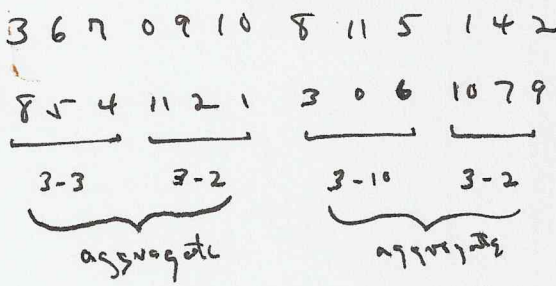 3 6 7 0 9 10 8 11 5 1 4 2
8 5 4 11 2 1 3 0 6 10 7 9
3-3 3-2 3-10 3-2
aggregate aggregate